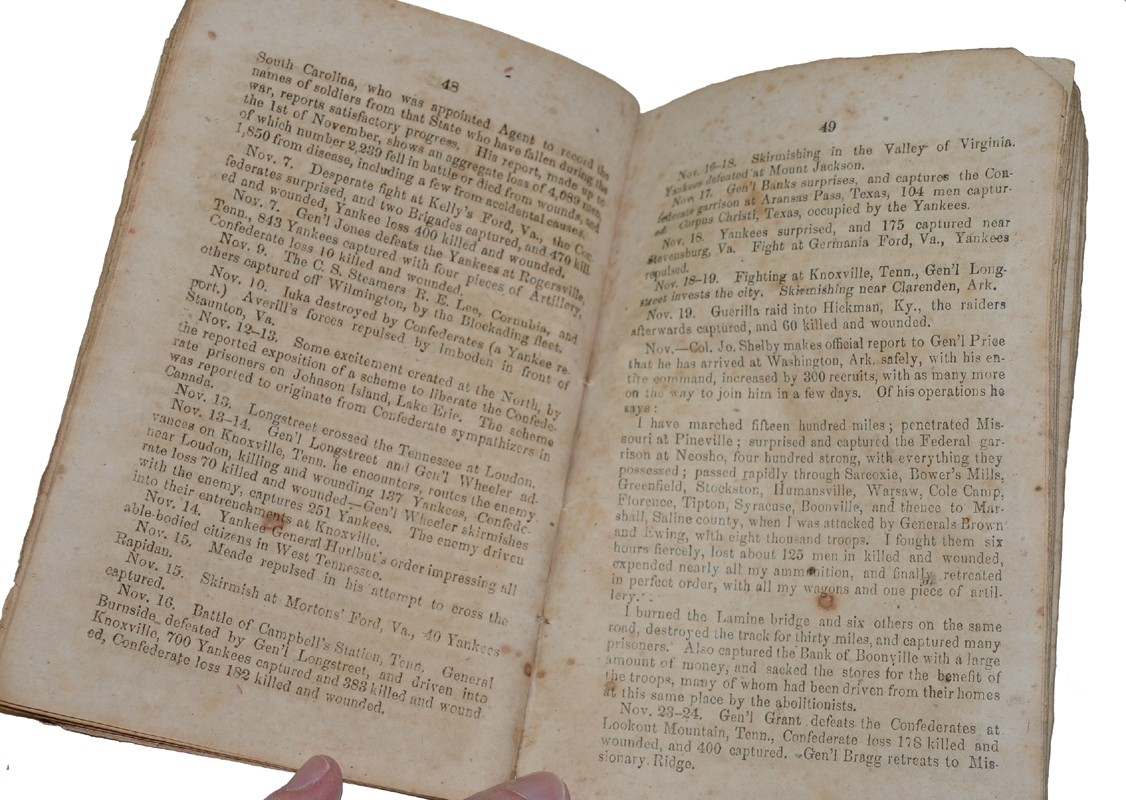 48
South Carolina, who was appointed Agent to record the
names of soldiers from that State who have fallen during the
war, reports satisfactory progress. His report, made up to
the 1st of November, shows an aggregate loss of 4,089 men,
of which number 2,239 fell in battle or died from wounds, and
1,850 from disease, including a few from accidental causes.
Nov. 7. Desperate fight at Kelly's Ford, Va., the Con-
federates surprised, and two Brigades captured, and 470 kill-
ed and wounded, Yankee loss 400 killed and wounded.
Nov. 7. Gen'l Jones defeats the Yankees at Rogersville,
Tenn., 843 Yankees captured with four pieces of Artillery,
Confederate loss 10 killed and wounded.
Nov. 9. The C. S. Steamers R. E. Lee, Cornubia, and
others captured off Wilmington, by the Blockading fleet.
Nov. 10. Iuka destroyed by Confederates (a Yankee re-
port.) Averill's forces repulsed by Imboden in front of
Staunton, Va.
Nov. 12-13. Some excitement created at the North, by
the reported exposition of a scheme to liberate the Confede-
rate prisoners on Johnson Island, Lake Erie. The scheme
was reported to originate from Confederate sympathizers in
Canada.
Nov. 13. Longstreet crossed the Tennessee at Loudon.
Nov. 13-14. Gen'l Longstreet and Gen'l Wheeler ad-
vances on Knoxville, Tenn. he encounters, routes the enemy
near Loudon, killing and wounding 137 Yankees, Confede-
rate loss 70 killed and wounded—Gen'l Wheeler skirmishes
with the enemy, captures 251 Yankees. The enemy driven
into their entrenchments at Knoxville.
Nov. 14. Yankee General Hurlbut's order impressing all
able-bodied citizens in West Tennessee.
Nov. 15. Meade repulsed in his attempt to cross the
Rapidan.
Nov. 15. Skirmish at Mortons' Ford, Va., 40 Yankees
captured.
Nov. 16. Battle of Campbell's Station, Tenn. General
Burnside defeated by Gen'l Longstreet, and driven into
Knoxville, 700 Yankees captured and 383 killed and wound-
ed, Confederate loss 182 killed and wounded.
49
Nov. 16-18. Skirmishing in the Valley of Virginia.
Yankees defeated at Mount Jackson.
Nov. 17. Gen'l Banks surprises, and captures the Con-
federate garrison at Aransas Pass, Texas, 104 men captur-
ed. Corpus Christi, Texas, occupied by the Yankees.
Nov. 18. Yankees surprised, and 175 captured near
Stevensburg, Va. Fight at Germania Ford, Va., Yankees
repulsed.
Nov. 18-19. Fighting at Knoxville, Tenn., Gen'l Long-
street invests the city. Skirmishing near Clarenden, Ark.
Nov. 19. Guerilla raid into Hickman, Ky., the raiders
afterwards captured, and 60 killed and wounded.
Nov.—Col. Jo. Shelby makes official report to Gen'l Price
that he has arrived at Washington, Ark. safely, with his en-
tire command, increased by 300 recruits, with as many more
on the way to join him in a few days. Of his operations he
says:
I have marched fifteen hundred miles; penetrated Mis-
souri at Pineville; surprised and captured the Federal gar-
rison at Neosho, four hundred strong, with everything they
possessed; passed rapidly through Sarcoxie, Bower's Mills,
Greenfield, Stockston, Humansville, Warsaw, Cole Camp,
Florence, Tipton, Syracuse, Boonville, and thence to Mar-
shall, Saline county, when I was attacked by Generals Brown
and Ewing, with eight thousand troops. I fought them six
hours fiercely, lost about 125 men in killed and wounded,
expended nearly all my ammunition, and finally retreated
in perfect order, with all my wagons and one piece of artil-
lery.
I burned the Lamine bridge and six others on the same
road, destroyed the track for thirty miles, and captured many
prisoners. Also captured the Bank of Boonville with a large
amount of money, and sacked the stores for the benefit of
the troops, many of whom had been driven from their homes
at this same place by the abolitionists.
Nov. 23-24. Gen'l Grant defeats the Confederates at
Lookout Mountain, Tenn., Confederate loss 178 killed and
wounded, and 400 captured. Gen'l Bragg retreats to Mis-
sionary Ridge.